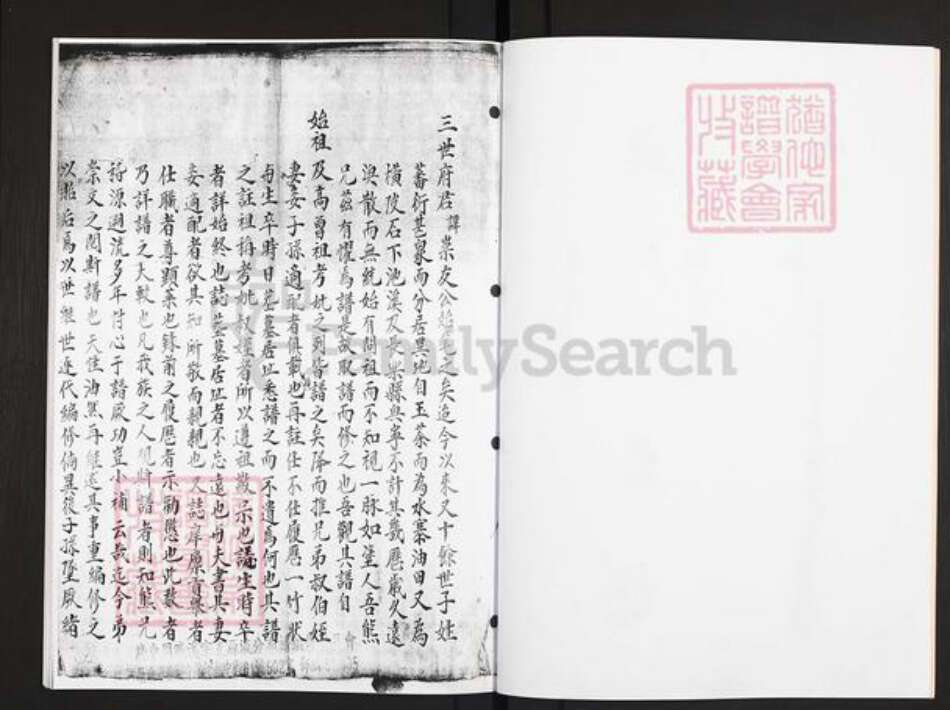 三世府君諱崇友公始已之矣迄今以來又十餘世子姓
蕃衍甚眾而分居異地自玉茶而為水寨油田又為
橫陂石下池溪及長樂縣興寧不計其幾歷歲久遠
渙散而無統始有問祖而不知視一脉如塗人吾熊
兄茲有懼焉譜是故取譜而修之也吾觀其譜自
始祖及高曾祖考妣之列皆譜之矣降而推兄弟叔伯姪
妻妾子孫適配者俱載也再註仕不仕履歷一竹狀
每生卒時日塟墓居址悉譜之而不遺為何也其譜
之註祖稱考妣叔姪者所以遵祖獻示也講生時卒
者詳始終也誌塟墓居址者不忘遠也母夫書其妻
妾適配者欲其知所敬而親親也又誌庠廩貢舉者
仕職者尊顯荣也錄前之履歷者示勸懲也此數者
乃詳譜之大較也凡我族之人觀斯譜者則知熊兄
溯流多年付心于譜厥功豈小補云哉迄今弟
崇文之閱斯譜也再續其事重編修之
以貽后焉以世繼世迭代編修倘異後子孫墜厥緒
猶他家譜學會收藏
FamilySearch